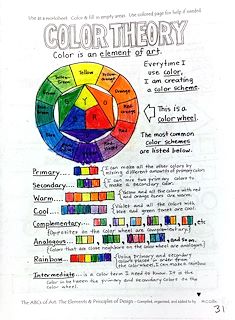 Use as a worksheet. Color & fill in empty areas. Use colored page for help if needed.
COLOR THEORY
Color is an element of art.
Everytime I
use color,
I am creating
a color scheme.
Yellow
Yellow-Green
Yellow-Orange
Green
Orange
Red
Y
O
R
This is a
color wheel.
The most common
color schemes
are listed below.
Primary
I can make all the other colors by
mixing different amounts of primary colors
Secondary
I can mix two primary colors to
make a secondary color.
Warm
Yellow and all the colors with red
and orange items are warm.
Cool
Violet and all the colors with
blue and green tones are cool.
Complementary
etc
(Opposites on the color wheel are complementary)
Analogous
and so on.
(Colors that are close neighbors on the color wheel are analogous)
Rainbow
Using Primary and secondary
colors placed in order from
the color wheel, I can make a rainbow
Intermediate
is a color term I need to know. It is the
color in between the primary and secondary colors on the
color wheel.
The ABCs of Art: The Elements & Principles of Design - Compiled, organized, and edited by
31